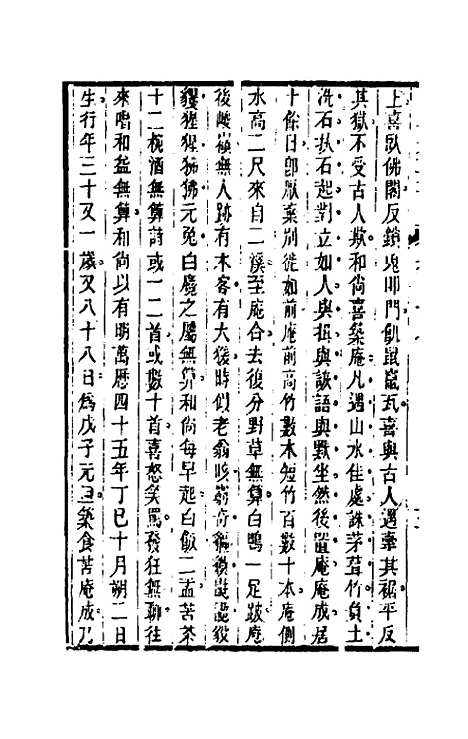 上喜臥佛閣反鎖鬼叩門飢鼠竄瓦喜與古人遇牽其裾平反
其獄不受古人欺和尚喜築庵凡遇山水佳處誅茅葺竹負土
洗石扒石起對立如人與揖與談語與默坐然後置庵庵成居
十餘日卽厭棄別徙如前庵前高竹數木短竹百數十本庵側
水高二尺來自二溪至庵合去後分野草無算白鴨一足跛庵
後巉巖無人跡有木客有大猿時似老翁咳
猩猩狒狒元兔白鹿之屬無算和尚每早起白飯二盂苦茶
十二椀酒無算詩或一二首或數十首喜怒笑罵發狂無聊往
來嘈和益無算和尚以有明萬曆四十五年丁巳十月朔二日
生行年三十又一歲又八十八日爲戊子元旦築食苦庵成乃